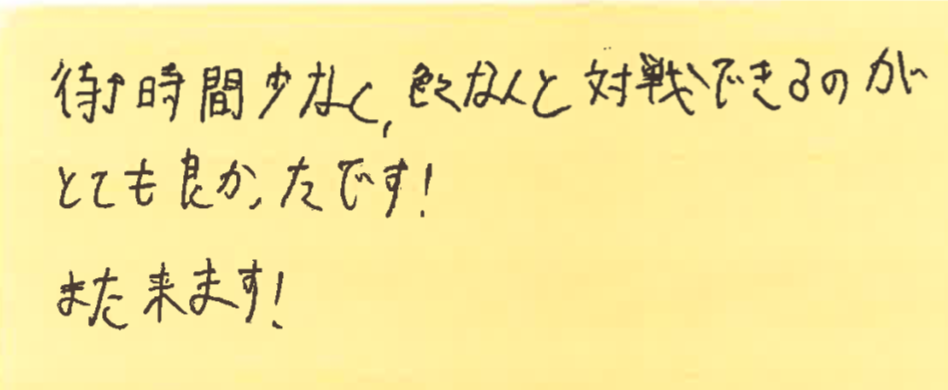 待ち時間少なく,色々な人と対戦できるのが
とても良かったです!
また来ます!